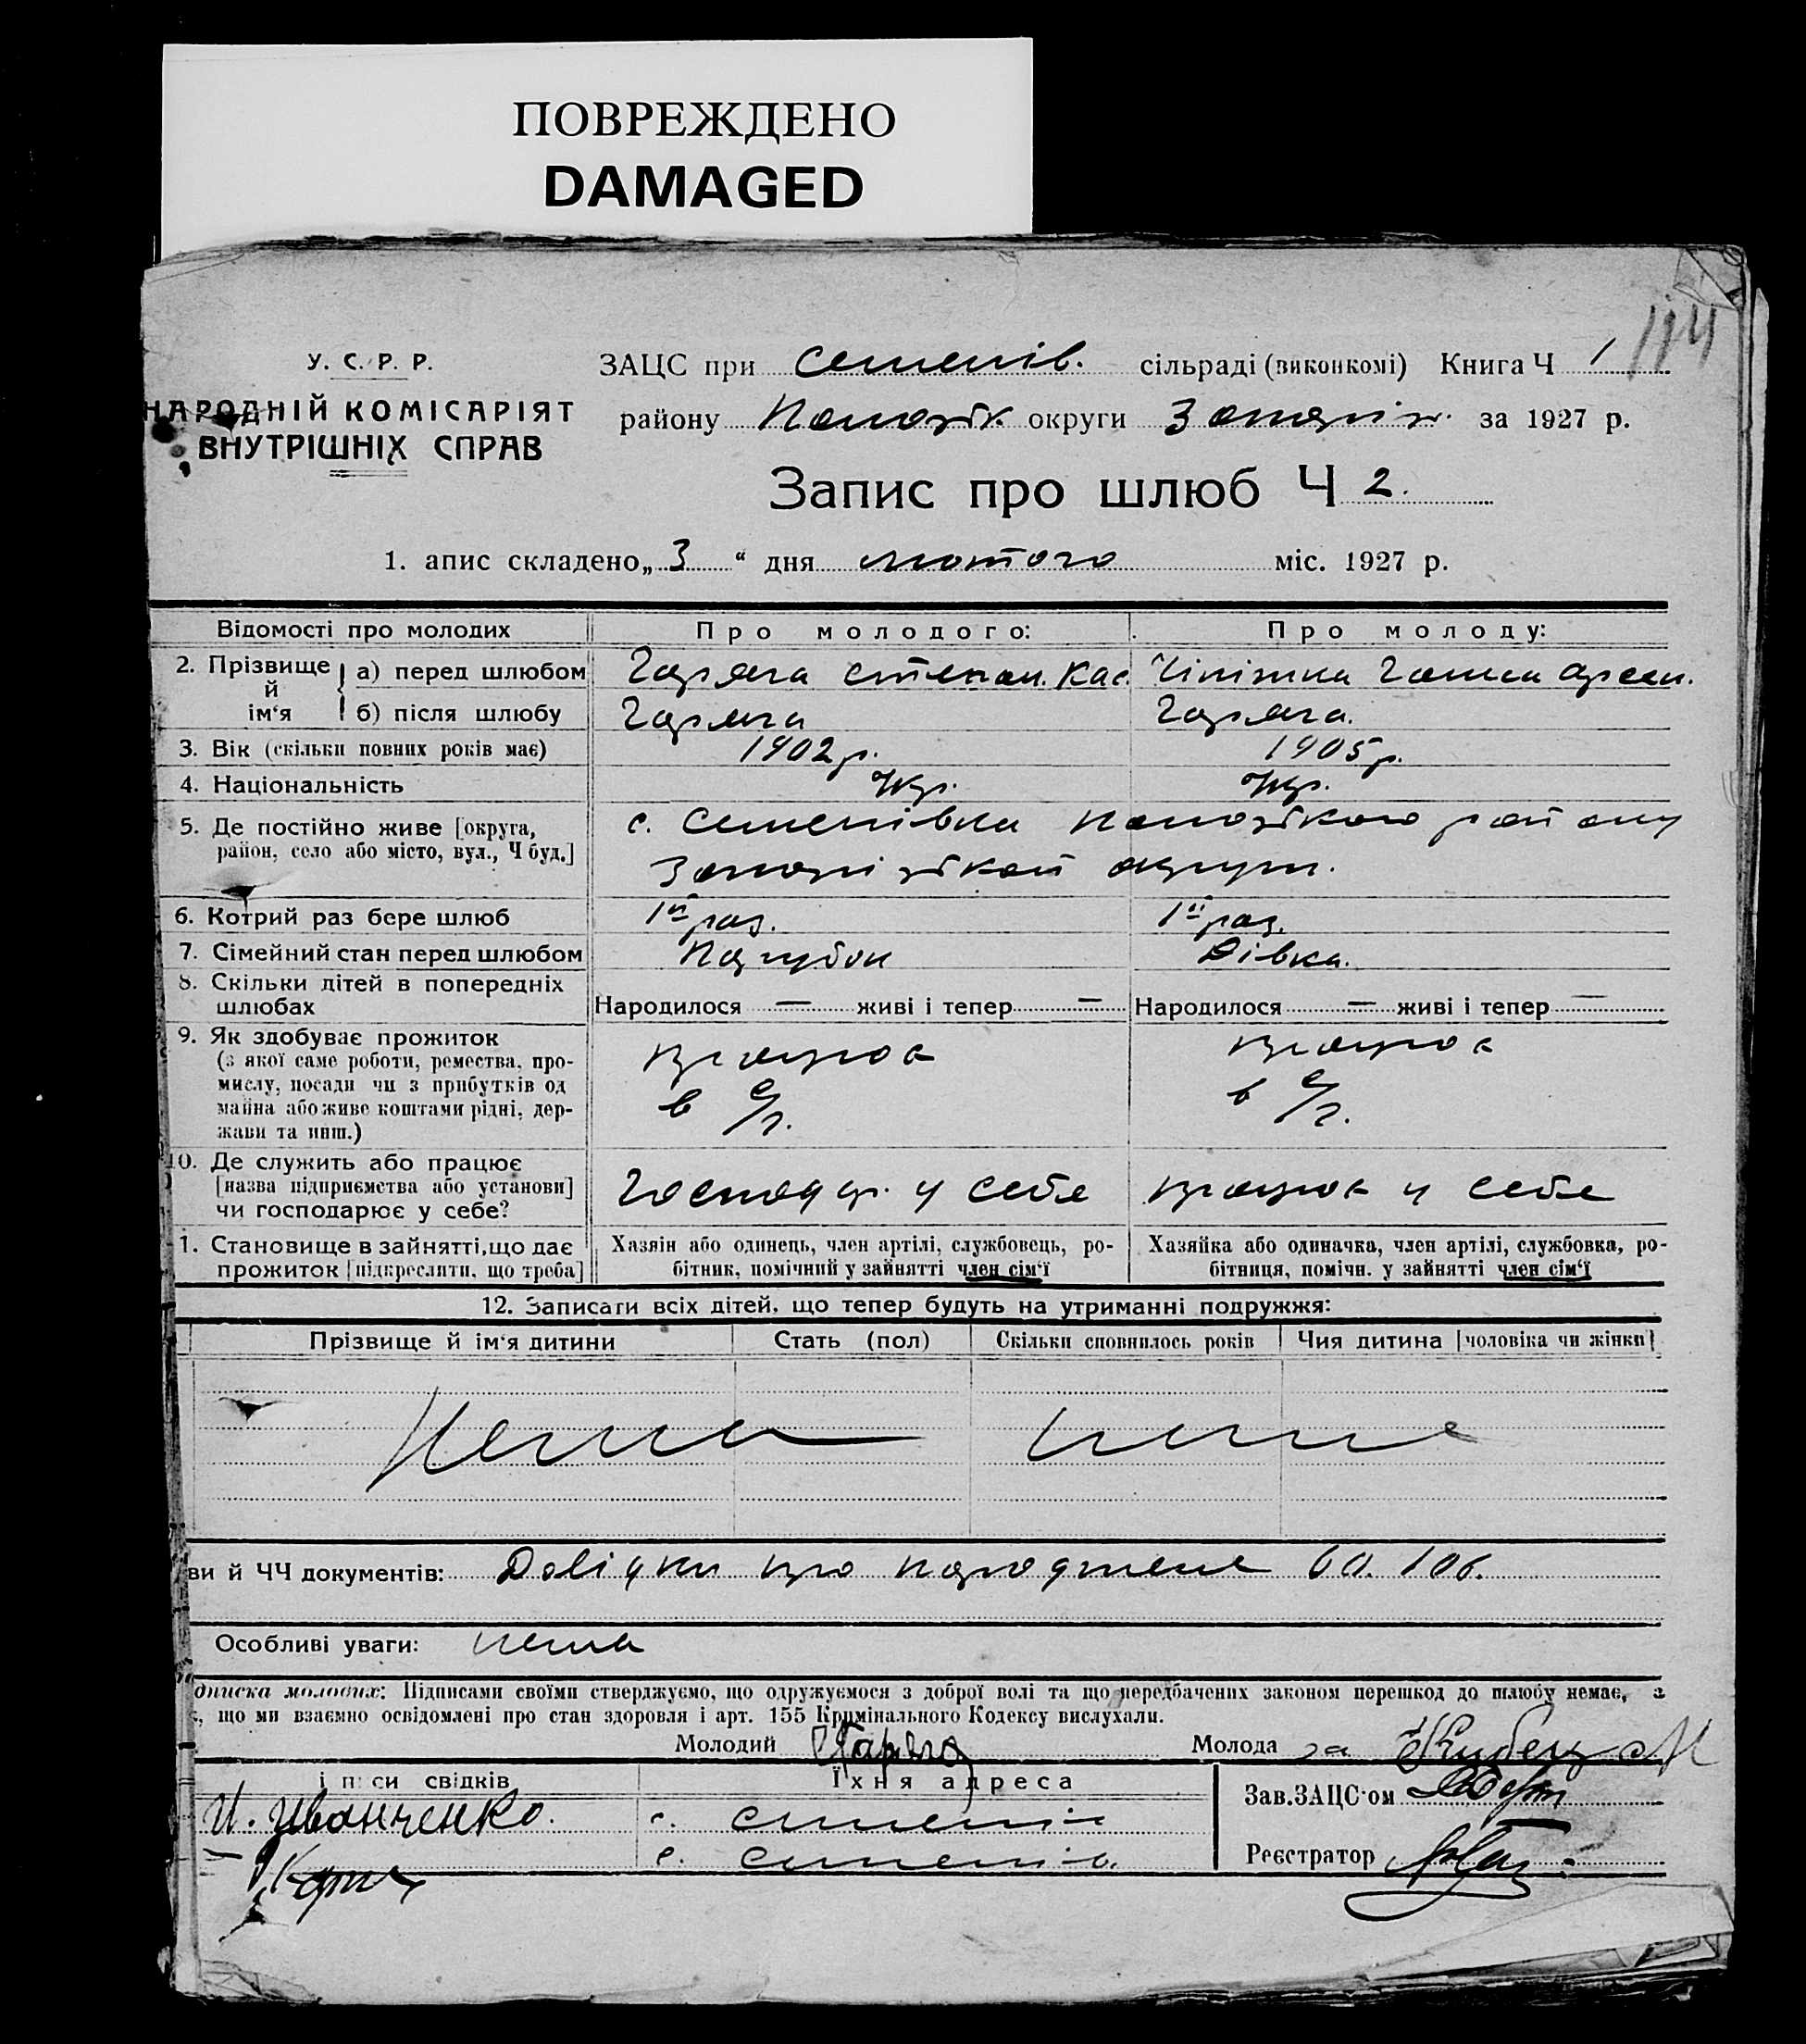 ПОВРЕЖДЕНО
DAMAGED
114
У. С. Р. Р.
НАРОДНІЙ КОМІСАРІЯТ
ВНУТРІШНІХ СПРАВ
ЗАЦС при Семенів. сільраді (виконкомі) Книга Ч 1
району округи за 1927 р.
Запис про шлюб Ч 2.
1. апис складено „ 3 “ дня лютого міс. 1927 р.
Відомості про молодих Про молодого: Про молоду:
2. Прізвище й ім‘я а) перед шлюбом Гаряга Степан. Кас. Ганна Арсен.
б) після шлюбу Гаряга Гаряга.
3. Вік (скільки повних років має) 1902 р. 1905 р.
4. Національність Укр. Укр.
5. Де постійно живе [округа, с. Семенівка району
район, село або місто, вул., Ч буд.] округи.
6. Котрий раз бере шлюб 1й раз. 1й раз.
7. Сімейний стан перед шлюбом Парубок Дівка.
8. Скільки дітей в попередніх
шлюбах Народилося — живі і тепер — Народилося — живі і тепер —
9. Як здобуває прожиток
(з якої саме роботи, ремества, про-
мислу, посади чи з прибутків од
майна або живе коштами рідні, дер-
жави та инш.)
працює
в с/г.
працює
в с/г.
10. Де служить або працює
[назва підприємства або установи]
чи господарює у себе?
Господар. у себе працює у себе
1. Становище в зайнятті, що дає
прожиток [підкреслити, що треба]
Хазяін або одинець, член артілі, службовець, ро-
бітник, помічний у зайнятті член сім‘ї
Хазяйка або одиначка, член артілі, службовка, ро-
бітниця, помічн. у зайнятті член сім‘ї
12. Записати всіх дітей, що тепер будуть на утриманні подружжя:
Прізвище й ім‘я дитини Стать (пол) Скільки сповнилось років Чия дитина [чоловіка чи жінки]
Нема нема
ви й ЧЧ документів: Довідки про народження
Особливі уваги: нема
дписка молодих: Підписами своїми стверджуємо, що одружуємося з доброї волі та що передбачених законом перешкод до шлюбу немає, а
, що ми взаємно освідомлені про стан здоровля і арт. 155 Кримінального Кодексу вислухали.
Молодий Гаряга Молода за
і писи свідків Їхня адреса Зав. ЗАЦС‘ом
И. Иванченко. с. Семенів
с. Семенів. Реєстратор